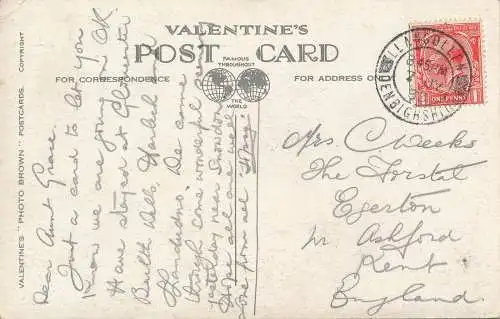 VALENTINE'S
POST CARD
FAMOUS THROUGHOUT
THE WORLD
FOR CORRESPONDENCE
FOR ADDRESS ON
VALENTINE'S "PHOTO BROWN" POSTCARDS. COPYRIGHT
Dear Aunt Grace.
Just a card to let you
know we are going on OK.
Have stayed at Gloucester
Builth Wells, Harlech &
Llandudno. We came
through some wonderful
yesterday near Snowdon
Hope all are well
love from all
LLANGOLLEN
DENBIGHSHIRE
ONE PENNY
Mrs C. Weeks
The Forstal
Egerton
nr Ashford
Kent
England